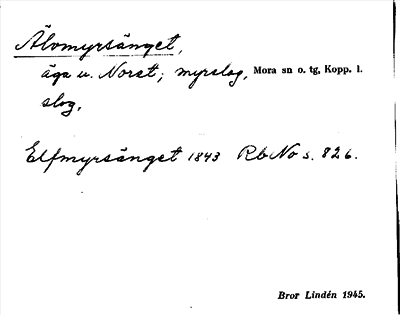 Älvmyrsänget,
äga u. Noret; myrslog, Mora sn o. tg, Kopp. l.
slog.
Elfmyrsänget 1843 RbNo s. 826.
Bror Lindén 1945.